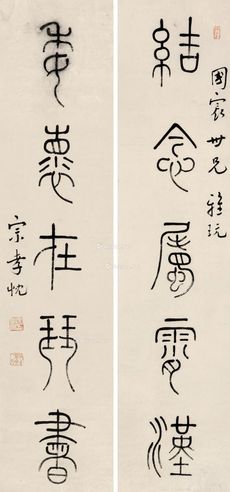 國世兄雅玩
結念屬霄漢
委懷在琴書
宗孝忱